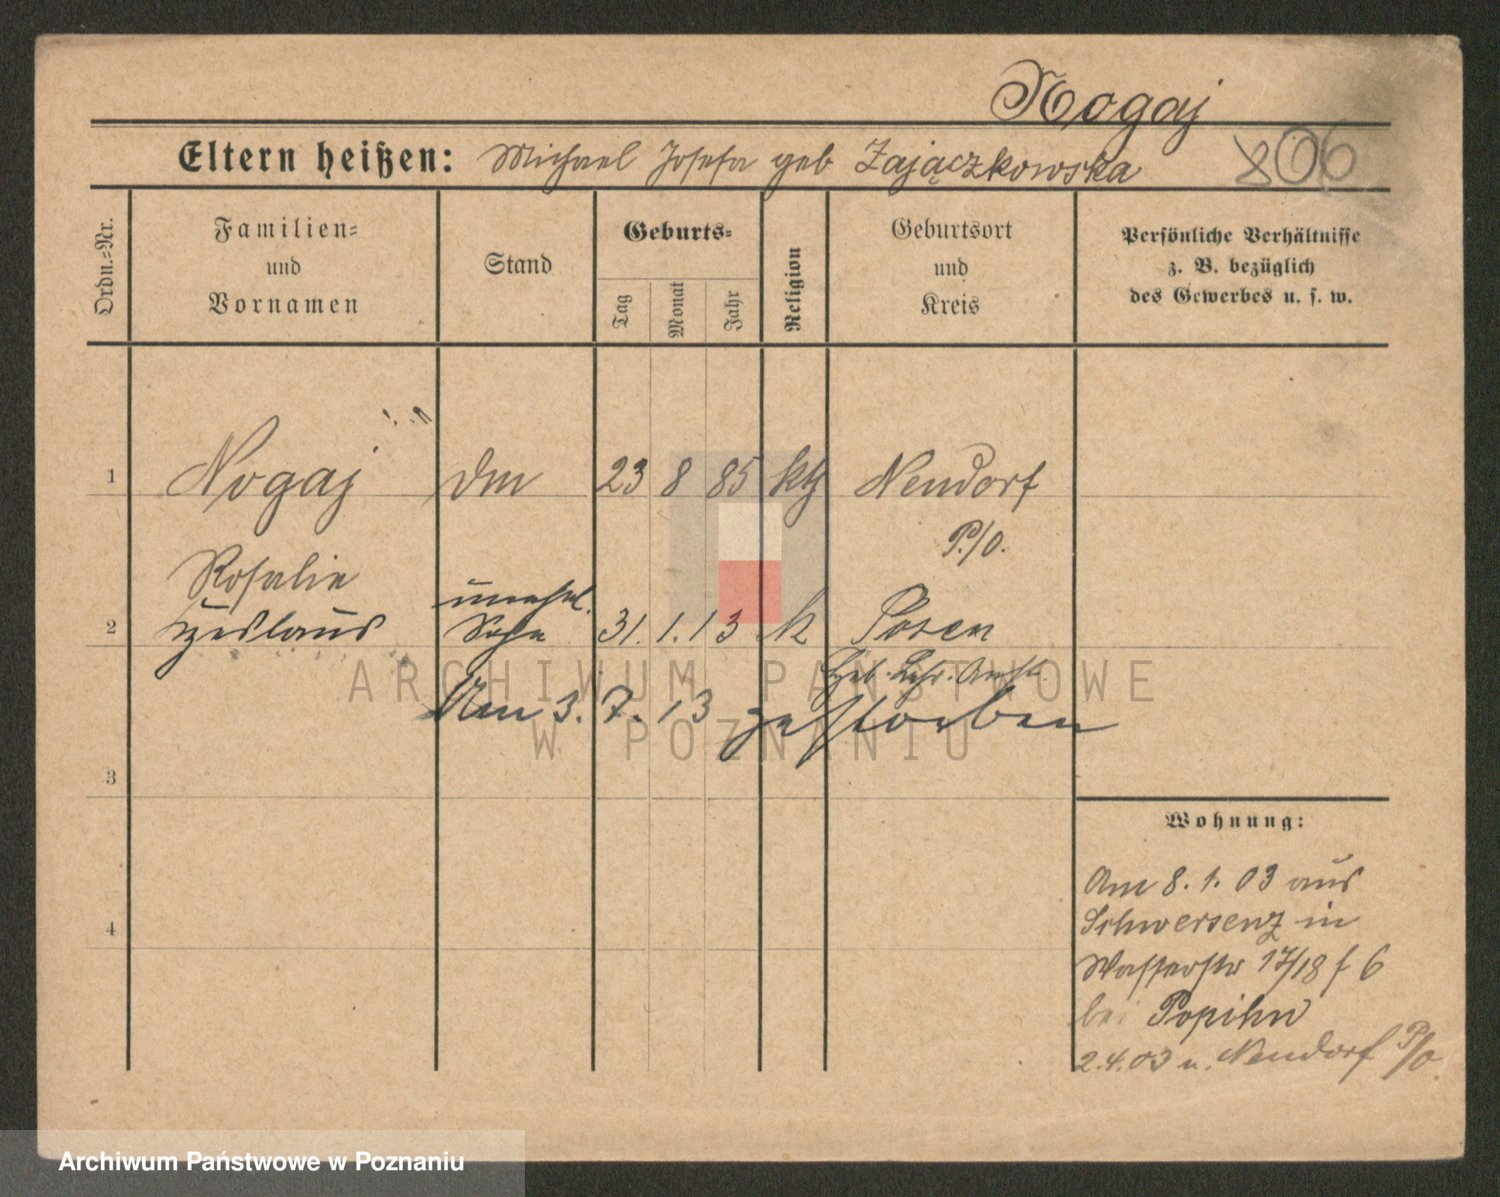 Nogaj
Eltern heißen: Michael Josefa geb Zajączkowska
806
Ordn.=Nr.
Familien=
und
Vornamen
Stand
Geburts=
Tag
Monat
Jahr
Religion
Geburtsort
und
Kreis
Persönliche Verhältnisse
z. B. bezüglich
des Gewerbes u. s. w.
1 Nogaj Dm 23 8 85 kth Neudorf
P./O.
Rosalie
unehel.
2 Czeslaus Sohn 31. 1. 13 k Posen
Geb. Lehr. Anst.
Am 3. 7. 13 gestorben
3
4
Wohnung:
Am 8. 1. 03 aus
Schwersenz in
Wasserstr 17/18 f 6
bei
2.4.03 n. Neudorf P/O.
ARCHIWUM PAŃSTWOWE
W POZNANIU
Archiwum Państwowe w Poznaniu